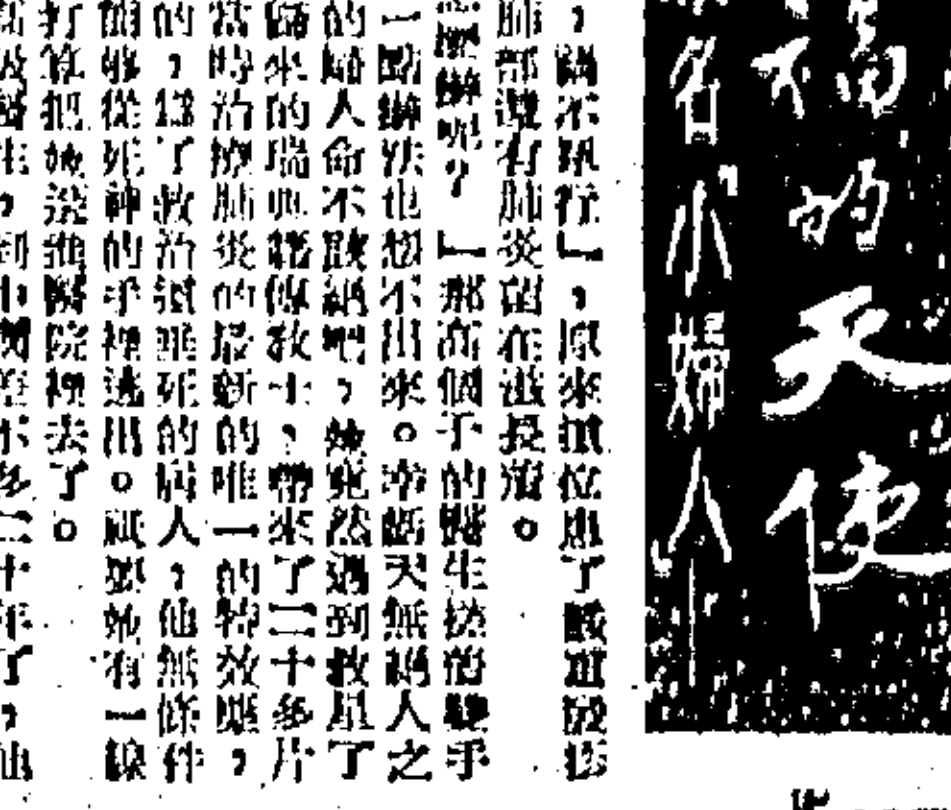 福的天使
名小婦人
行」，原來這位患了嚴重
肺部還有肺炎留在滋長着。
麼辦呢？」那高個子的醫生搓着雙手
一點辦法也想不出來。幸虧天無絕人之
的婦人命不該絕吧，她竟然遇到救星了
歸來的瑞典籍傳教士，帶來了二十多片
當時治療肺炎的最新的唯一的特效藥，
的，爲了救治這垂死的病人，他無條件
夠從死神的手裡逃出。祇要她有一線
打算把她送進醫院裡去了。
生，到中國差不多二十年了，他